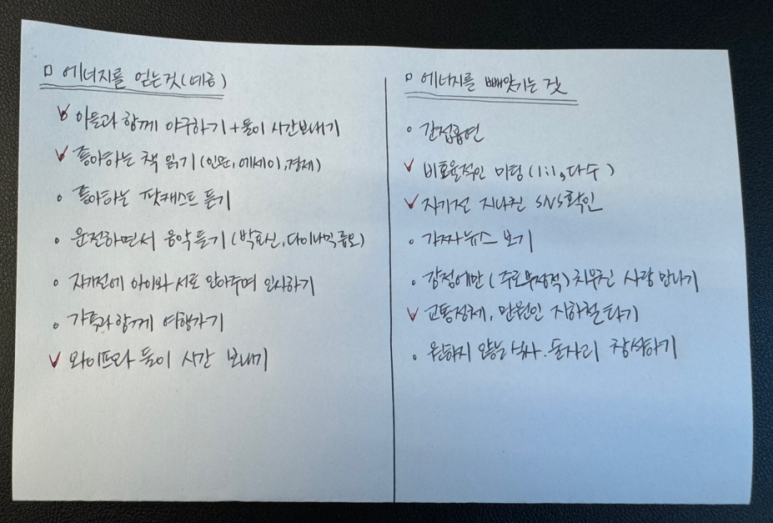 에너지를 얻는 것(예금)
아들과 함께 야구하기 + 둘이 시간보내기
좋아하는 책 읽기(인문, 에세이, 경제)
좋아하는 팟캐스트 듣기
운전하면서 음악듣기(박효신, 다이나믹듀오)
자기전에 아이와 서로 안아주며 인사하기
가족과 함께 여행가기
와이프와 둘이 시간 보내기
에너지를 빼앗기는 것
간접흡연
비효율적인 미팅(1:1, 다수)
자기전 지나친 SNS확인
가짜뉴스 보기
감정에만(주로부정적) 치우친 사람 만나기
교통정체, 만원인 지하철타기
원하지 않는 식사·술자리 참석하기